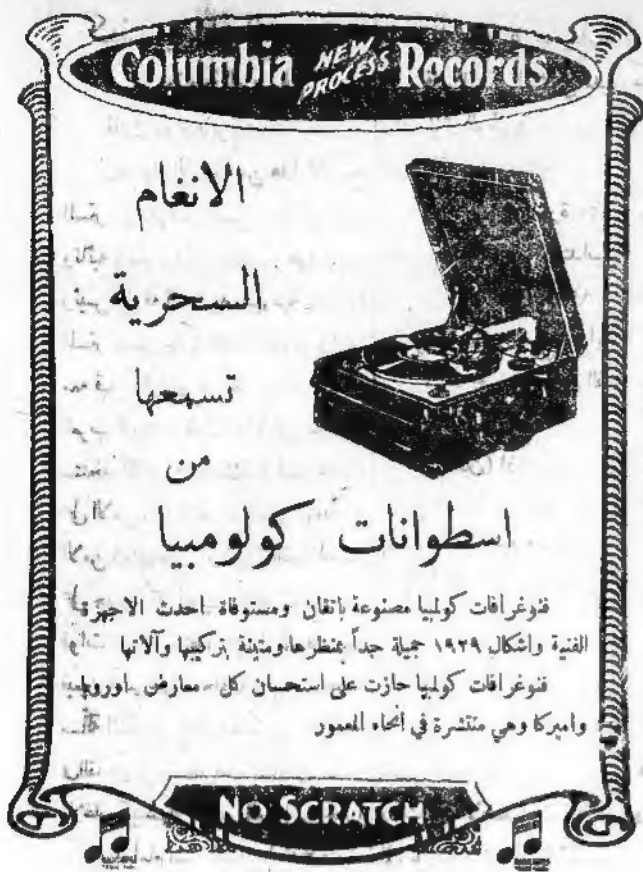 Columbia NEW PROCESS Records
الانغام
السحرية
تسمعها
من
اسطوانات كولومبيا
فنوغرافات كولمبيا مصنوعة باتقان ومستوفاة احدث الاجهزة
الفنية واشكال ١٩٢٩ جميلة جداً بمنظرها ومتينة بتركيبها وآلاتها
فنوغرافات كولمبيا حازت على استحسان كل معارض اوروبا
واميركا وهي منتشرة في أنحاء المعمور
NO SCRATCH